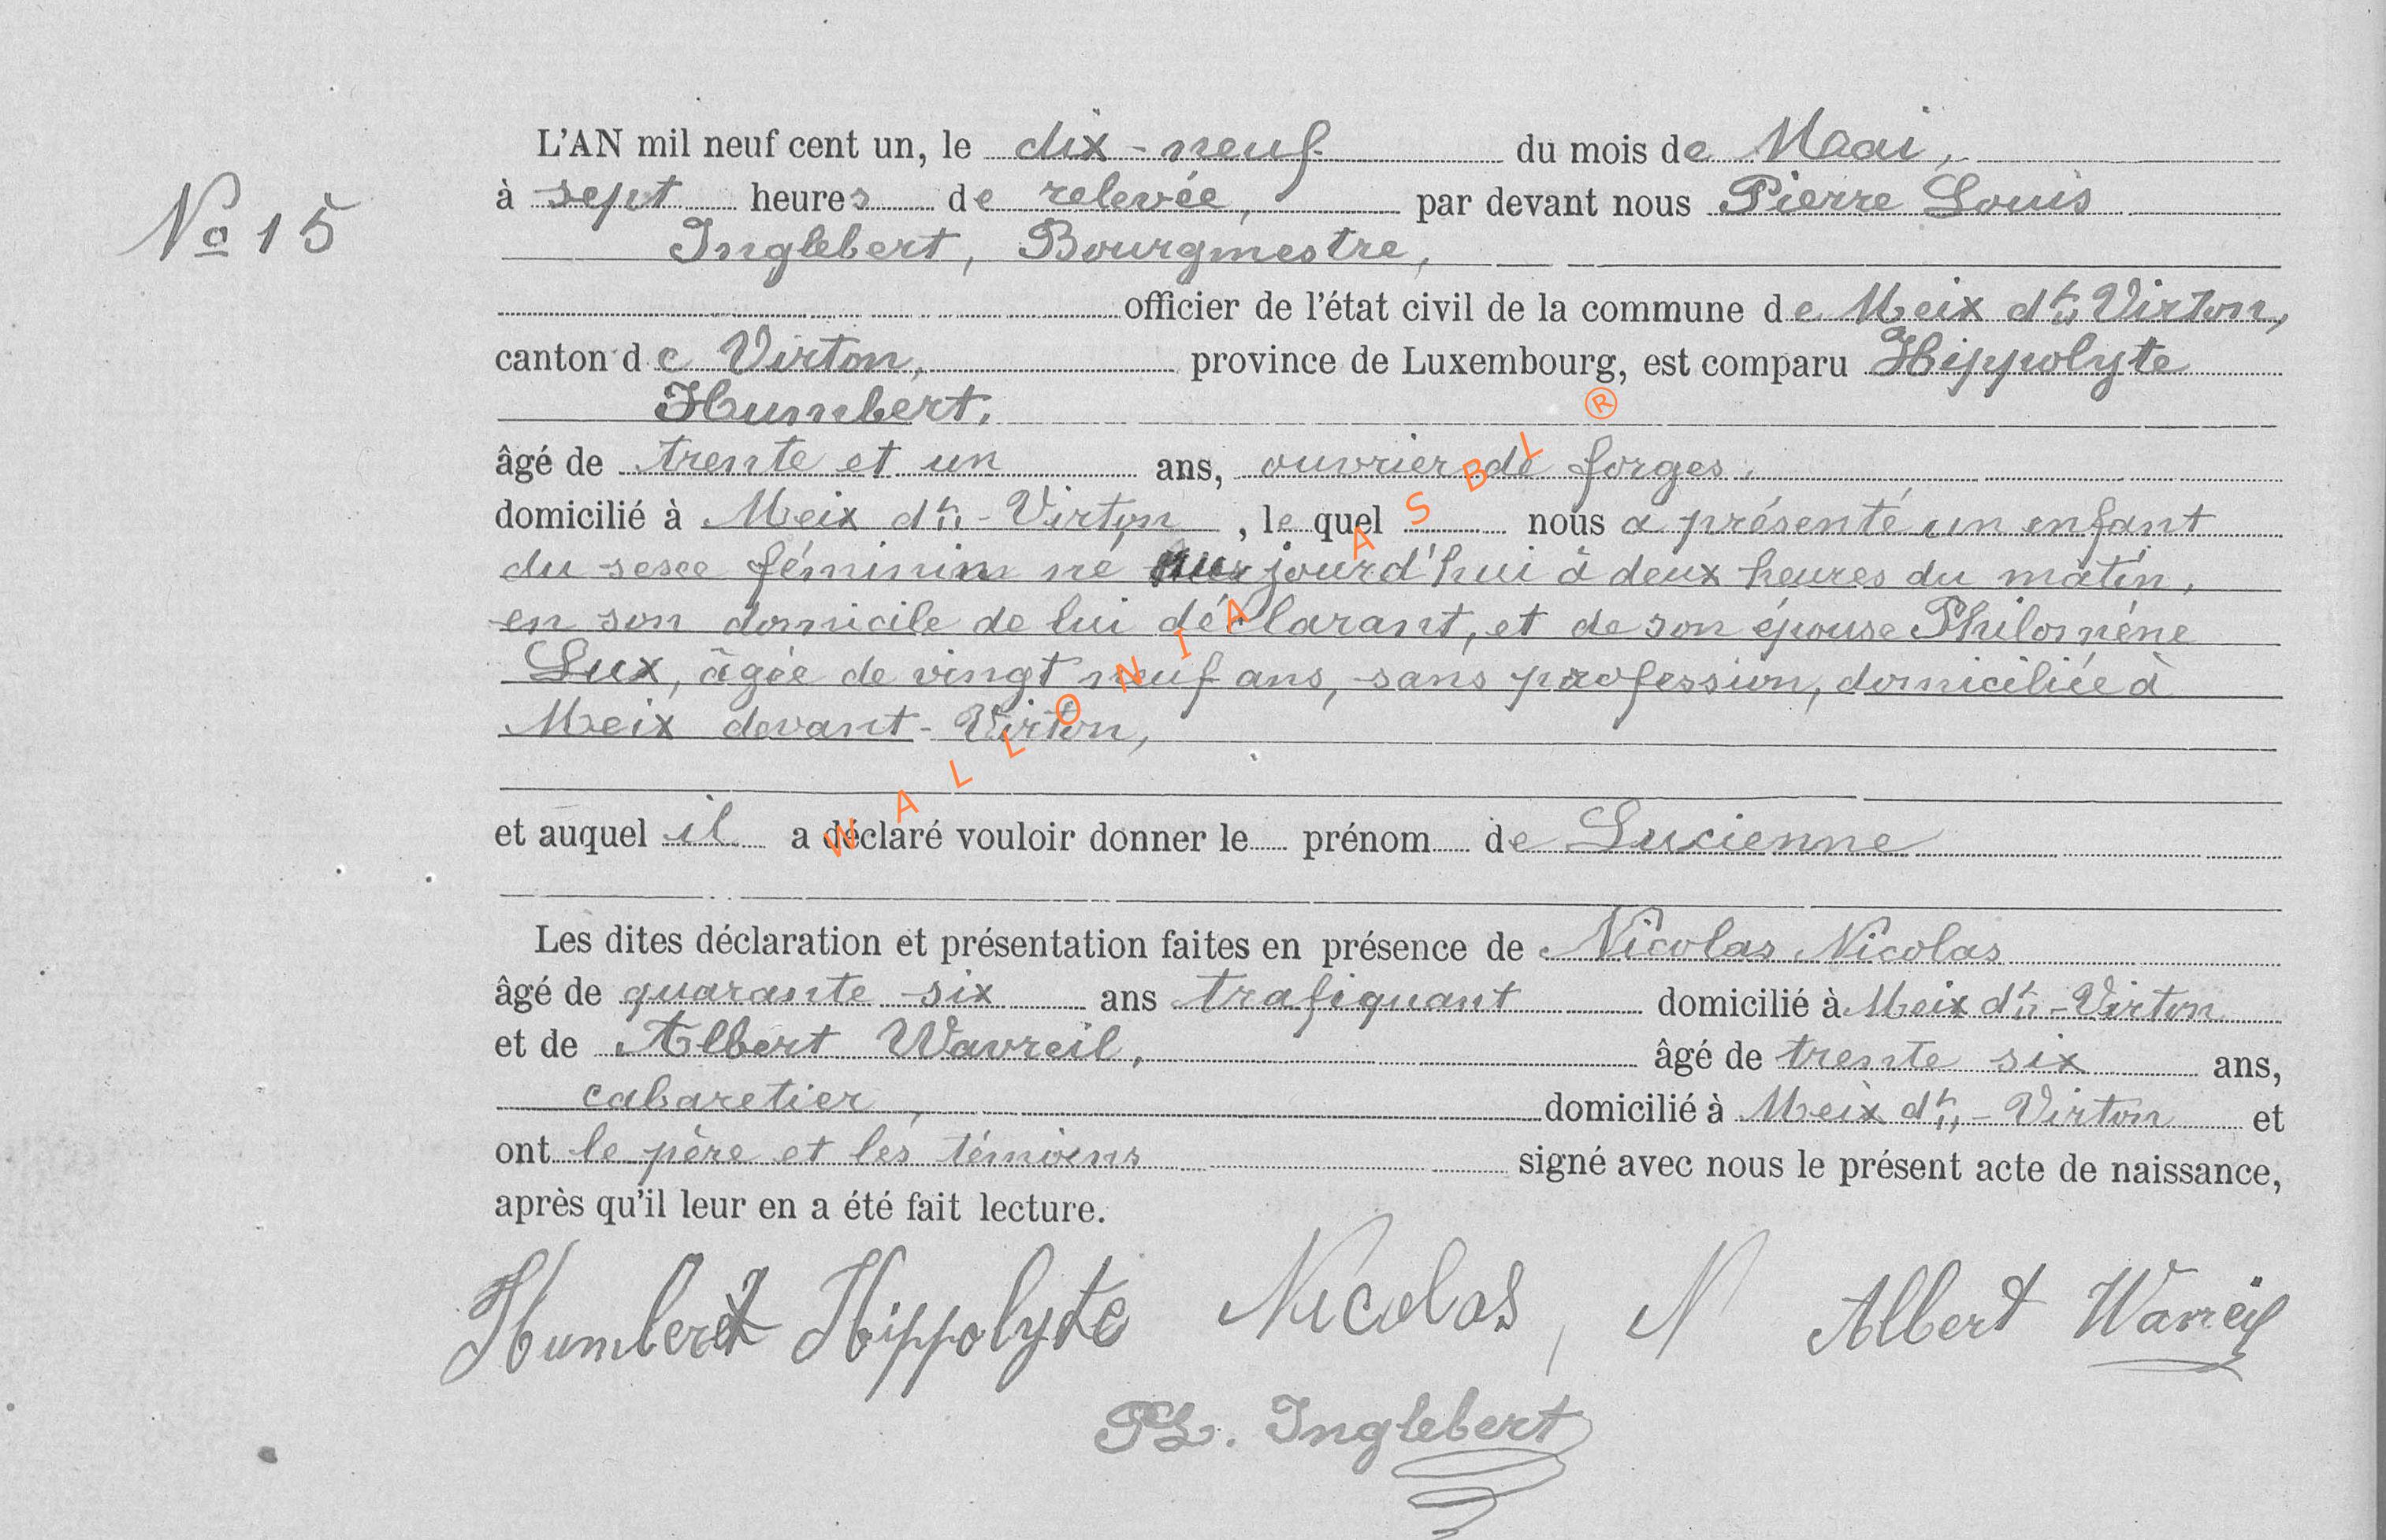 No 15
L'AN mil neuf cent un, le dix-neuf du mois de Mai,
à sept heures de relevée, par devant nous Pierre Louis
Inglebert, Bourgmestre,
officier de l'état civil de la commune de Meix dt Virton,
canton de Virton, province de Luxembourg, est comparu Hippolyte
Humbert.
âgé de trente et un ans, ouvrier de forges,
domicilié à Meix dt-Virton, lequel nous a présenté un enfant
du sexe féminin né aujourd'hui à deux heures du matin,
en son domicile de lui déclarant, et de son épouse Philomène
Lux, âgée de vingt neuf ans, sans profession, domiciliée à
Meix devant-Virton,
et auquel il a déclaré vouloir donner le prénom de Lucienne
Les dites déclaration et présentation faites en présence de Nicolas Nicolas
âgé de quarante six ans trafiquant domicilié à Meix dt-Virton
et de Albert Wavreil, âgé de trente six ans,
cabaretier, domicilié à Meix dt-Virton et
ont le père et les témoins signé avec nous le présent acte de naissance,
après qu'il leur en a été fait lecture.
Humbert Hippolyte Nicolas, N Albert Wavreil
PL. Inglebert
WALLONIA ASBL ®